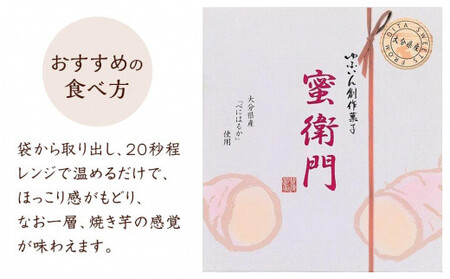 おすすめの
食べ方
袋から取り出し、20秒程
レンジで温めるだけで、
ほっこり感がもどり、
なお一層、焼き芋の感覚
が味わえます。
ゆふいん創作菓子
蜜衛門
大分県産
「べにはるか」
使用
FROM OITA SWEETS
大分県産